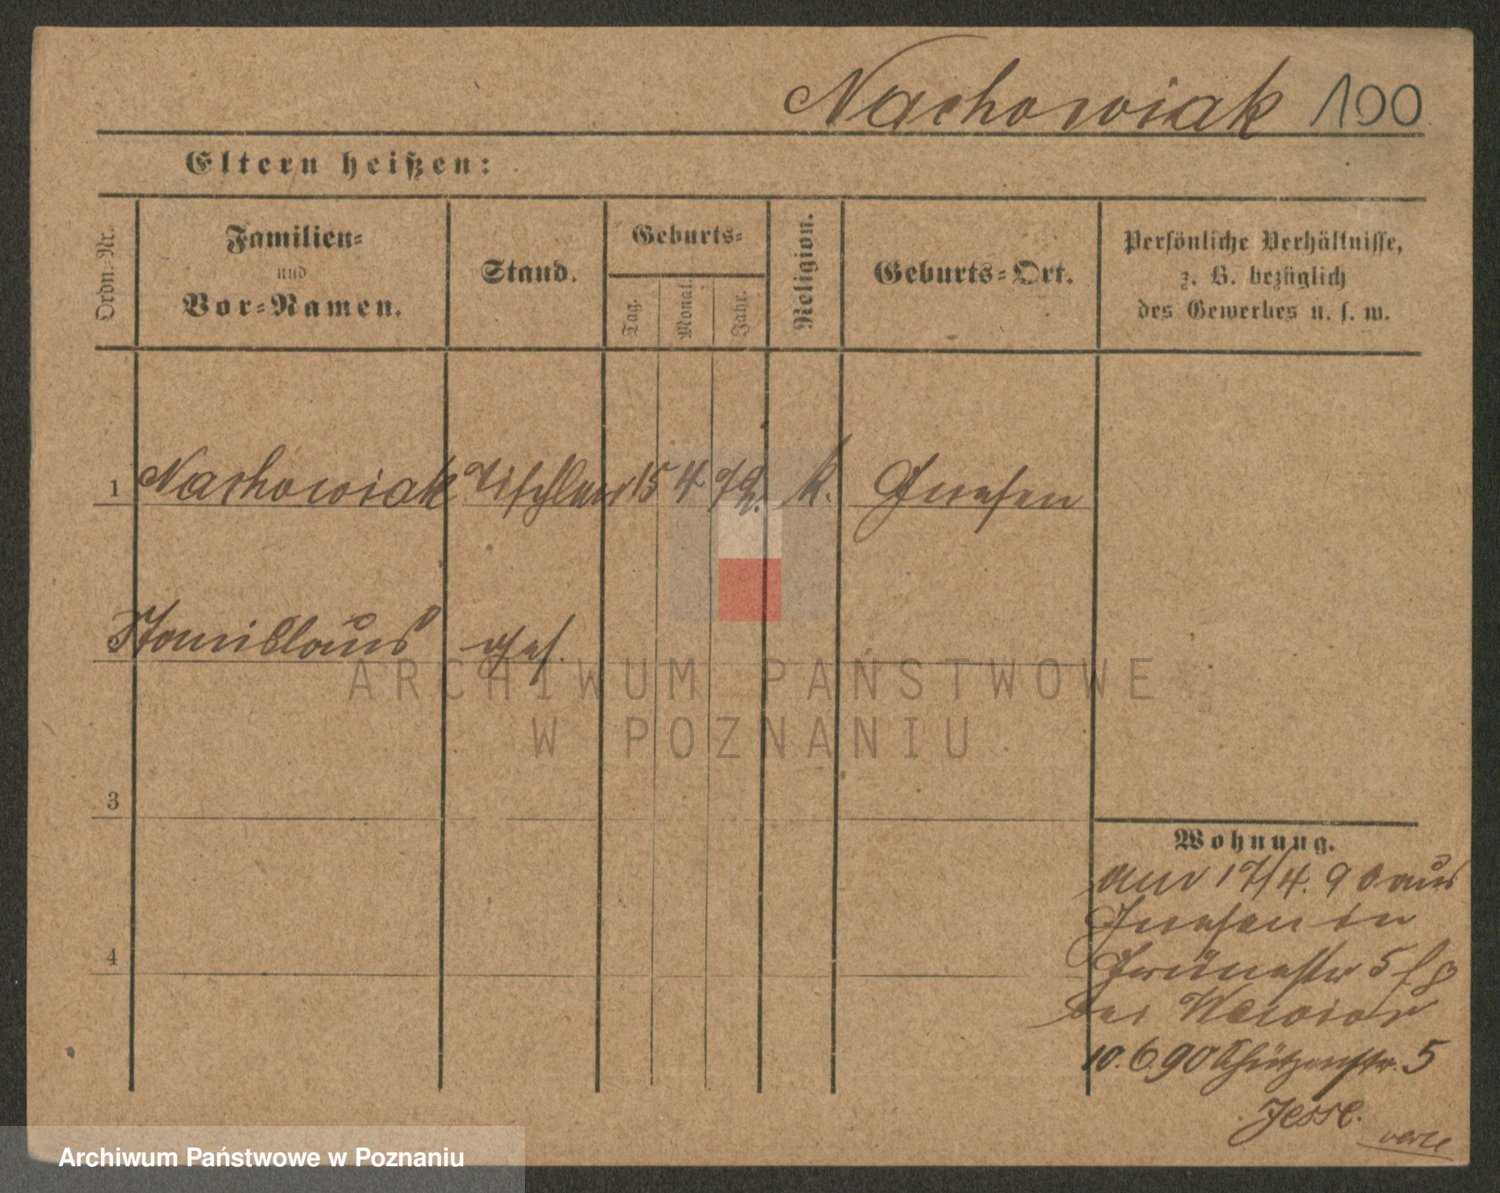 Nachowiak 100
Eltern heißen:
Ordn.-Nr.
Familien-
und
Vor-Namen.
Stand.
Geburts-
Tag.
Monat.
Jahr.
Religion.
Geburts-Ort.
Persönliche Verhältnisse,
z. B. bezüglich
des Gewerbes u. s. w.
1 Nachowiak Tischler 15 4 72. k. Gnesen
Stanislaus ges.
ARCHIWUM PAŃSTWOWE
W POZNANIU
3
4
Wohnung.
am 17/4. 90 aus
Gnesen in
Grünestr 5
bei
10.6.90 Schützenstr. 5
Jesse.
verte
Archiwum Państwowe w Poznaniu